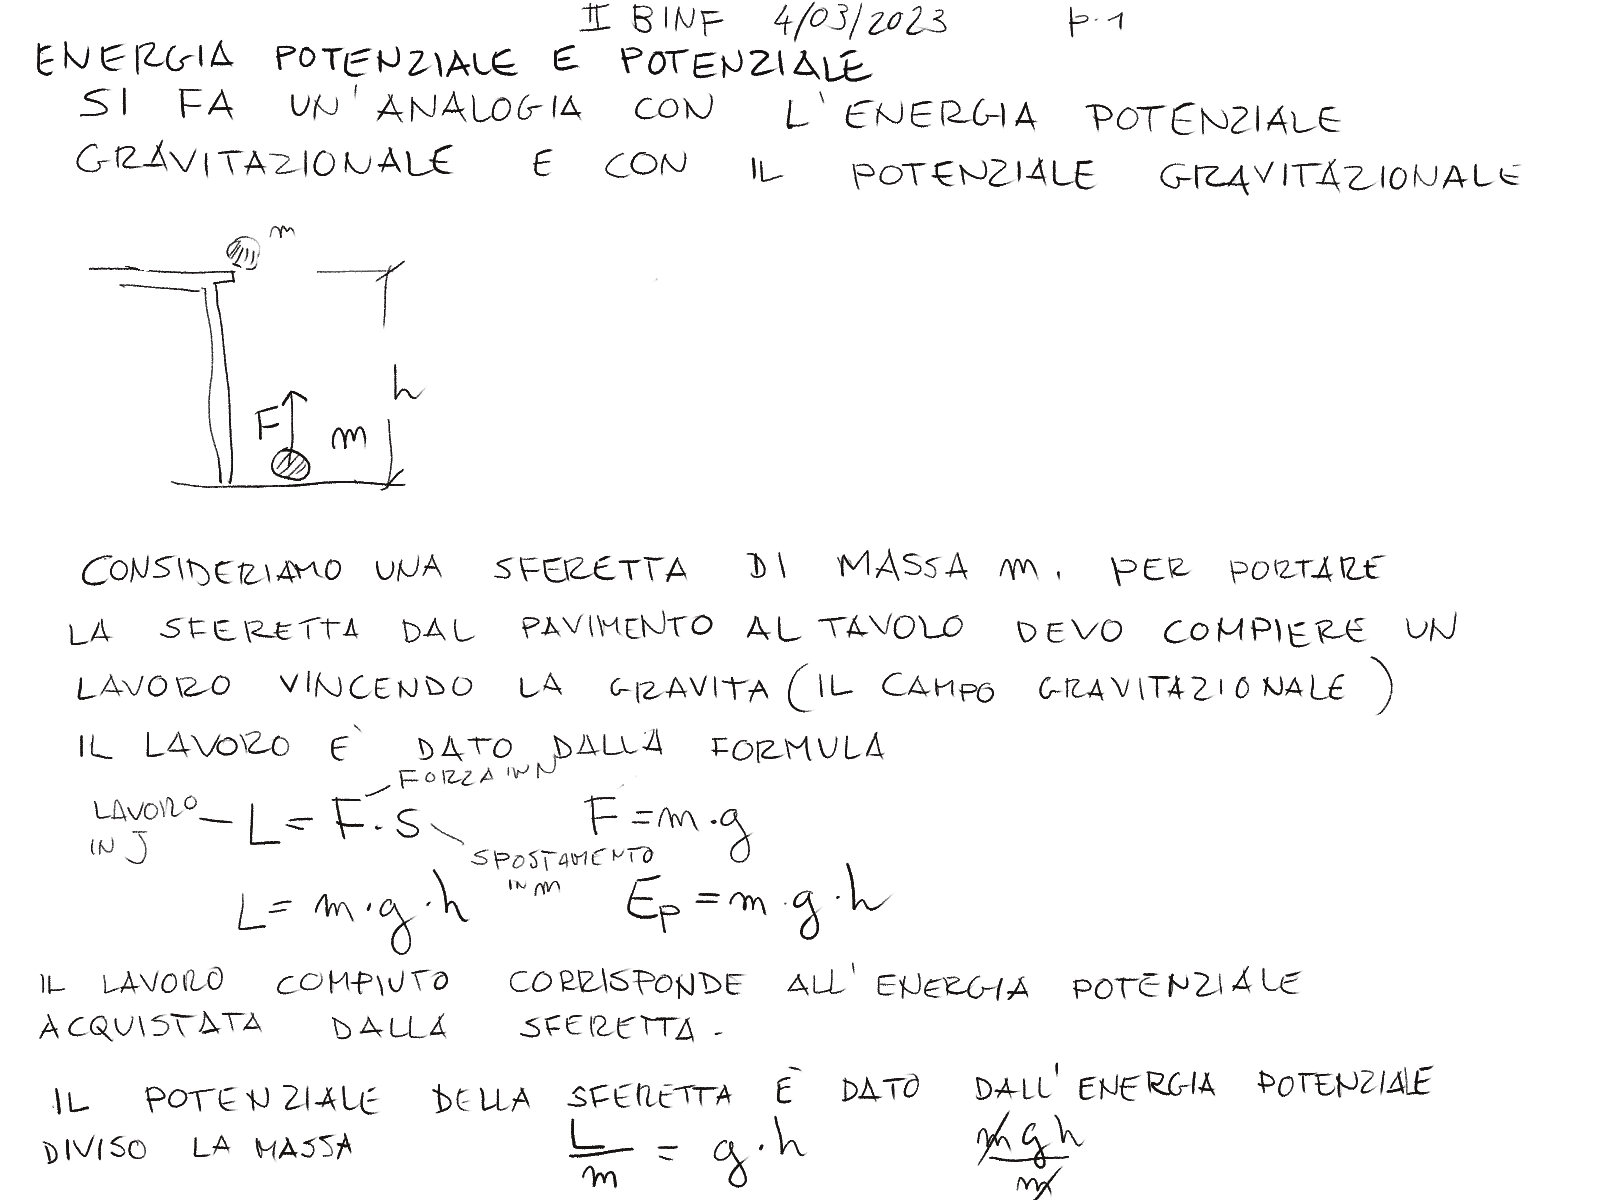 II BINF 4/03/2023 p.1
ENERGIA POTENZIALE E POTENZIALE
SI FA UN'ANALOGIA CON L'ENERGIA POTENZIALE
GRAVITAZIONALE E CON IL POTENZIALE GRAVITAZIONALE
m
h
F m
CONSIDERIAMO UNA SFERETTA DI MASSA m. PER PORTARE
LA SFERETTA DAL PAVIMENTO AL TAVOLO DEVO COMPIERE UN
LAVORO VINCENDO LA GRAVITA (IL CAMPO GRAVITAZIONALE)
IL LAVORO E' DATO DALLA FORMULA
FORZA IN N
LAVORO IN J — L = F · s F = m · g
SPOSTAMENTO IN m
L = m · g · h Ep = m · g · h
IL LAVORO COMPIUTO CORRISPONDE ALL'ENERGIA POTENZIALE
ACQUISTATA DALLA SFERETTA.
IL POTENZIALE DELLA SFERETTA È DATO DALL'ENERGIA POTENZIALE
DIVISO LA MASSA L/m = g · h m g h/m